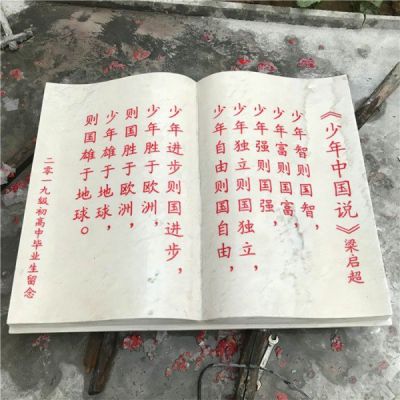 《少年中国说》梁启超
少年智则国智，
少年富则国富，
少年强则国强，
少年独立则国独立，
少年自由则国自由，
少年进步则国进步，
少年胜于欧洲，
则国胜于欧洲，
少年雄于地球，
则国雄于地球。
二零一九级初高中毕业生留念